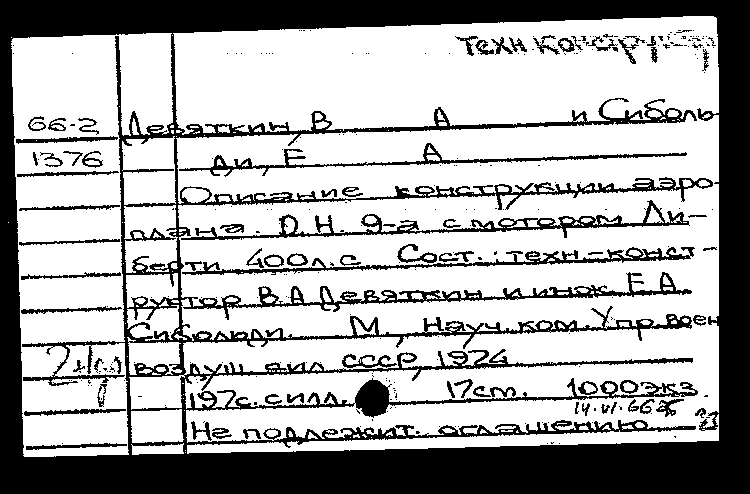 Техн конструктор
66-2 Девяткин, В А и Сиболь-
1376 ди, Е А
Описание конструкции аэро-
плана. D.H. 9-а с мотором Ли-
берти 400л.с Сост.: техн.-конст-
руктор В А Девяткин и инж Е А
Сиболюди. М., Науч. ком. Упр. воен
воздуш сил СССР, 1924
197с. с илл. 17см. 1000экз
14.VI.66
Не подлежит. оглашению